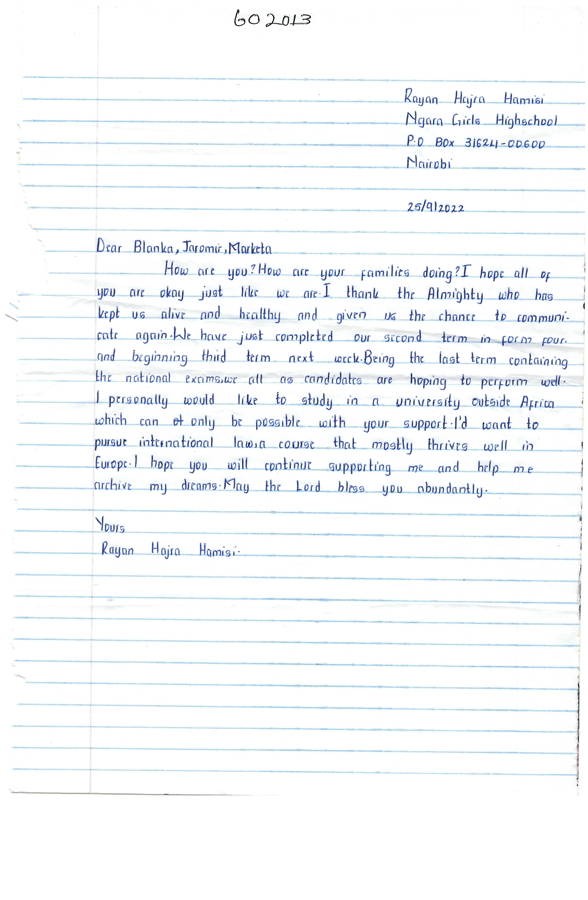 GO 2013
Rayan Hajra Hamisi
Ngara Girls Highschool
P.O Box 31624-00600
Nairobi
25/9/2022
Dear Blanka, Jaromir, Marketa
How are you? How are your families doing? I hope all of
you are okay just like we are. I thank the Almighty who has
kept us alive and healthy and given us the chance to communi-
cate again. We have just completed our second term in form four
and beginning third term next week. Being the last term containing
the national exams, we all as candidates are hoping to perform well.
I personally would like to study in a university outside Africa
which can only be possible with your support. I'd want to
pursue international law, a course that mostly thrives well in
Europe. I hope you will continue supporting me and help me
archive my dreams. May the Lord bless you abundantly.
Yours
Rayan Hajra Hamisi.